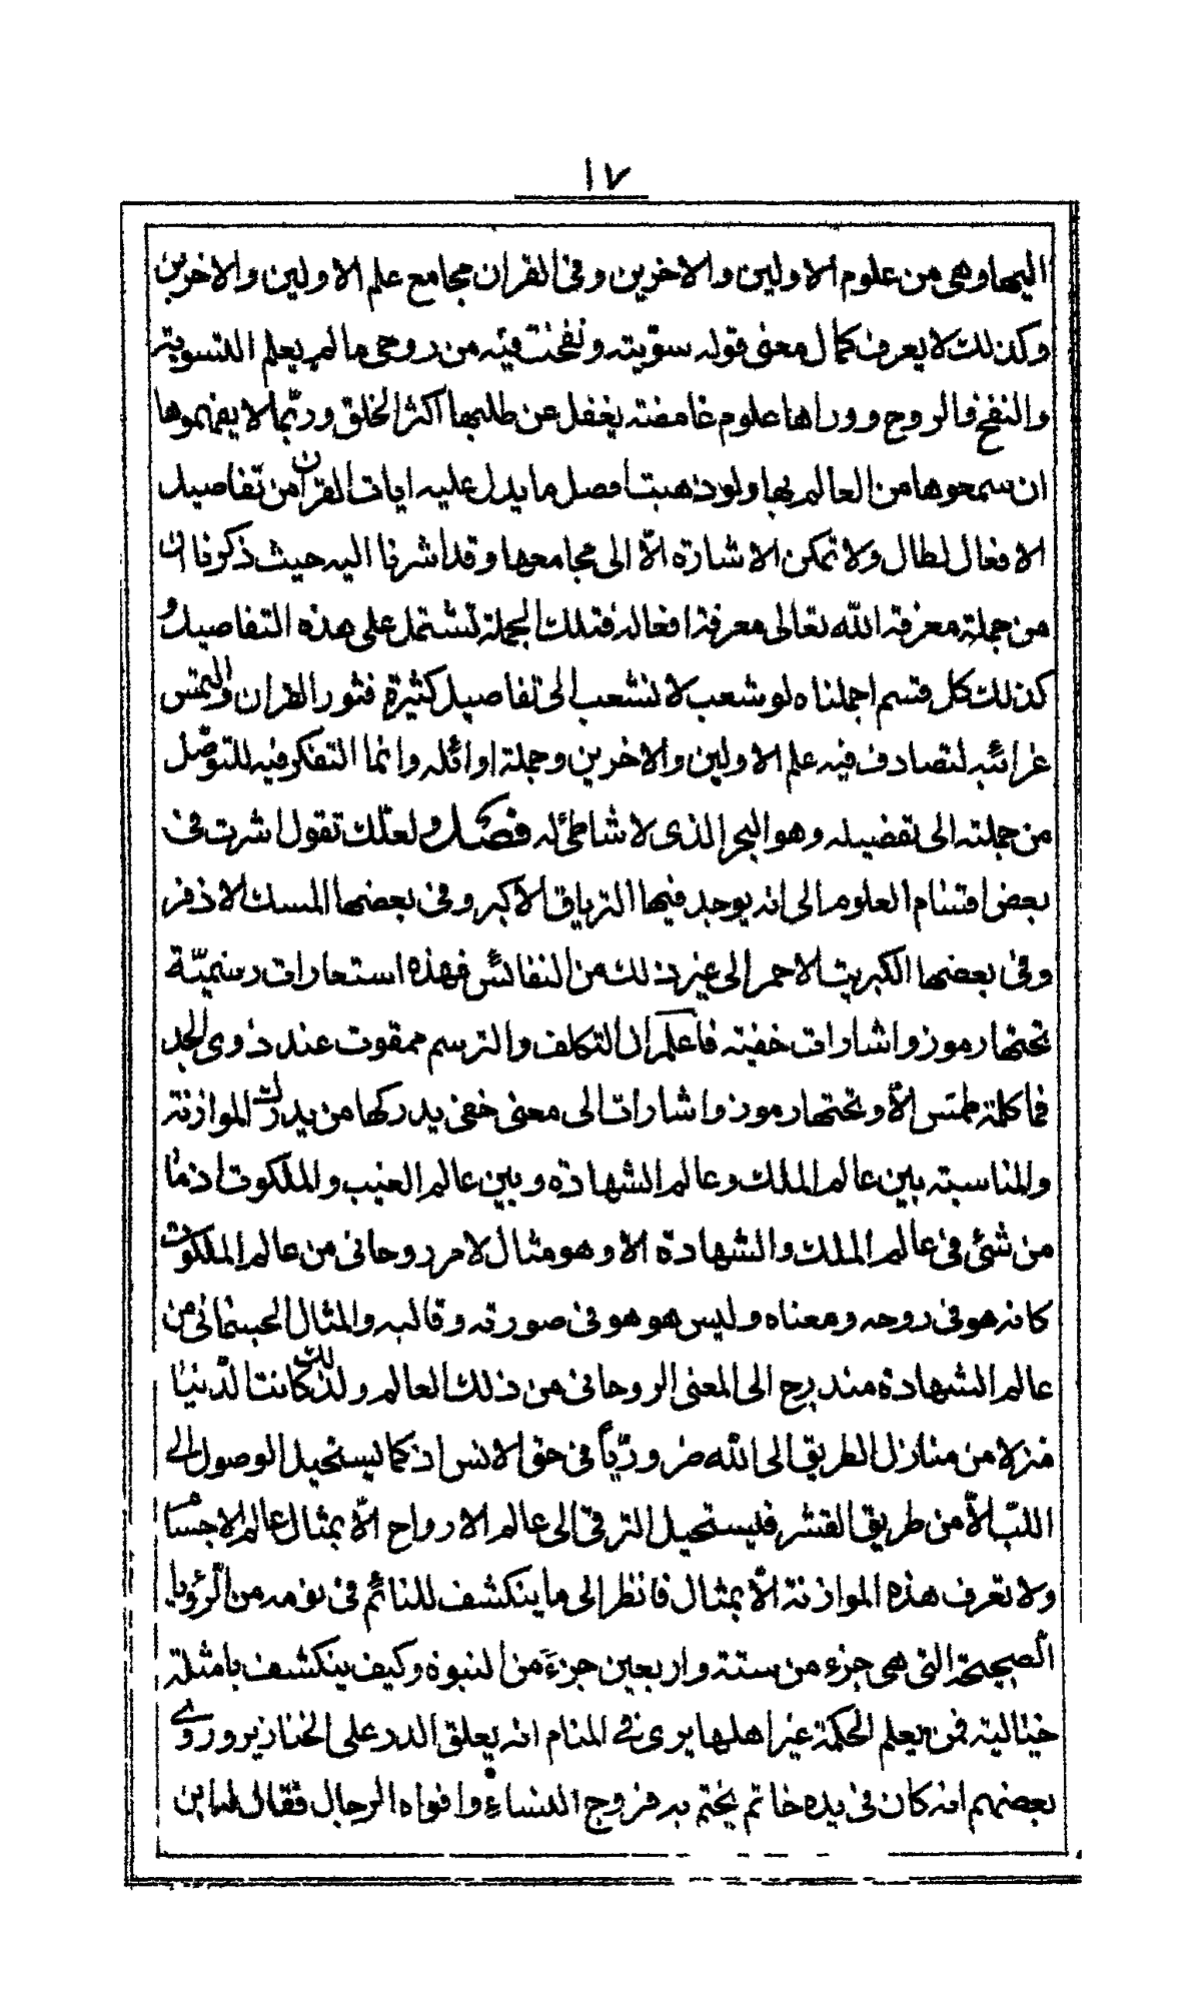 ١٧
اليها وهي من علوم الاولين والاخرين وفى القران مجامع علم الاولين والاخرين
وكذلك لا يعرف كمال معنى قوله سوّيته ونفخت فيه من روحى ما لم يعلم التسوية
والنفخ والروح ووراها علوم غامضة يغفل عن طلبها اكثر الخلق وربّما لا يفهموها
ان سمعوها من العالم بها ولو ذهبت افصل ما يدل عليه ايات القران من تفاصيل
الافعال لطال ولا تمكن الاشارة الّا الى مجامعها وقد اشرنا اليه حيث ذكرنا ان
من جملة معرفة الله تعالى معرفة افعاله فتلك الجملة تشتمل على هذه التفاصيل و
كذلك كل قسم اجملناه لو شعب لانشعب الى تفاصيل كثيرة فثور القران والتمس
غرائبه لتصادف فيه علم الاولين والاخرين وجملة اوائله وانما التفكر فيه للتوصّل
من جملته الى تفضيله وهو البحر الذى لا شاطئ له فصل ولعلّك تقول اشرت فى
بعض اقسام العلوم الى انه يوجد فيها الترياق الاكبر وفى بعضها المسك الاذفر
وفى بعضها الكبريت الاحمر الى غير ذلك من النفائس فهذه استعارات رسميّة
تحتها رموز واشارات خفية فاعلم ان التكلف والترسم ممقوت عند ذوى الجد
فما كلمة طمس الّا وتحتها رموز واشارات الى معنى خفى يدركها من يدرك الموازنة
والمناسبة بين عالم الملك وعالم الشهادة وبين عالم الغيب والملكوت اذ ما
من شئ فى عالم الملك والشهادة الا وهو مثال لامر روحانى من عالم الملكوت
كانه هو فى روحه ومعناه وليس هو هو فى صورته وقالبه والمثال الجسمانى من
عالم الشهادة مندرج الى المعنى الروحانى من ذلك العالم ولذلك كانت الدّنيا
منزلا من منازل الطريق الى الله ضروريّاً فى حق الانس اذ كما يستحيل الوصول الى
اللبّ الّا من طريق القشر فليستحيل الترقى الى عالم الارواح الّا بمثال عالم الاجسام
ولا تعرف هذه الموازنة الّا بمثال فانظر الى ما ينكشف للنائم فى نومه من الرّؤيا
الصحيحة التى هى جزء من ستة واربعين جزء من النبوة وكيف ينكشف بامثلة
خيالية فمن يعلم الحكمة غير اهلها يرى فى المنام انه يعلق الدر على الخنازير وروى
بعضهم انه كان فى يده خاتم يختم به فروج النساء وافواه الرجال فقال له ابن